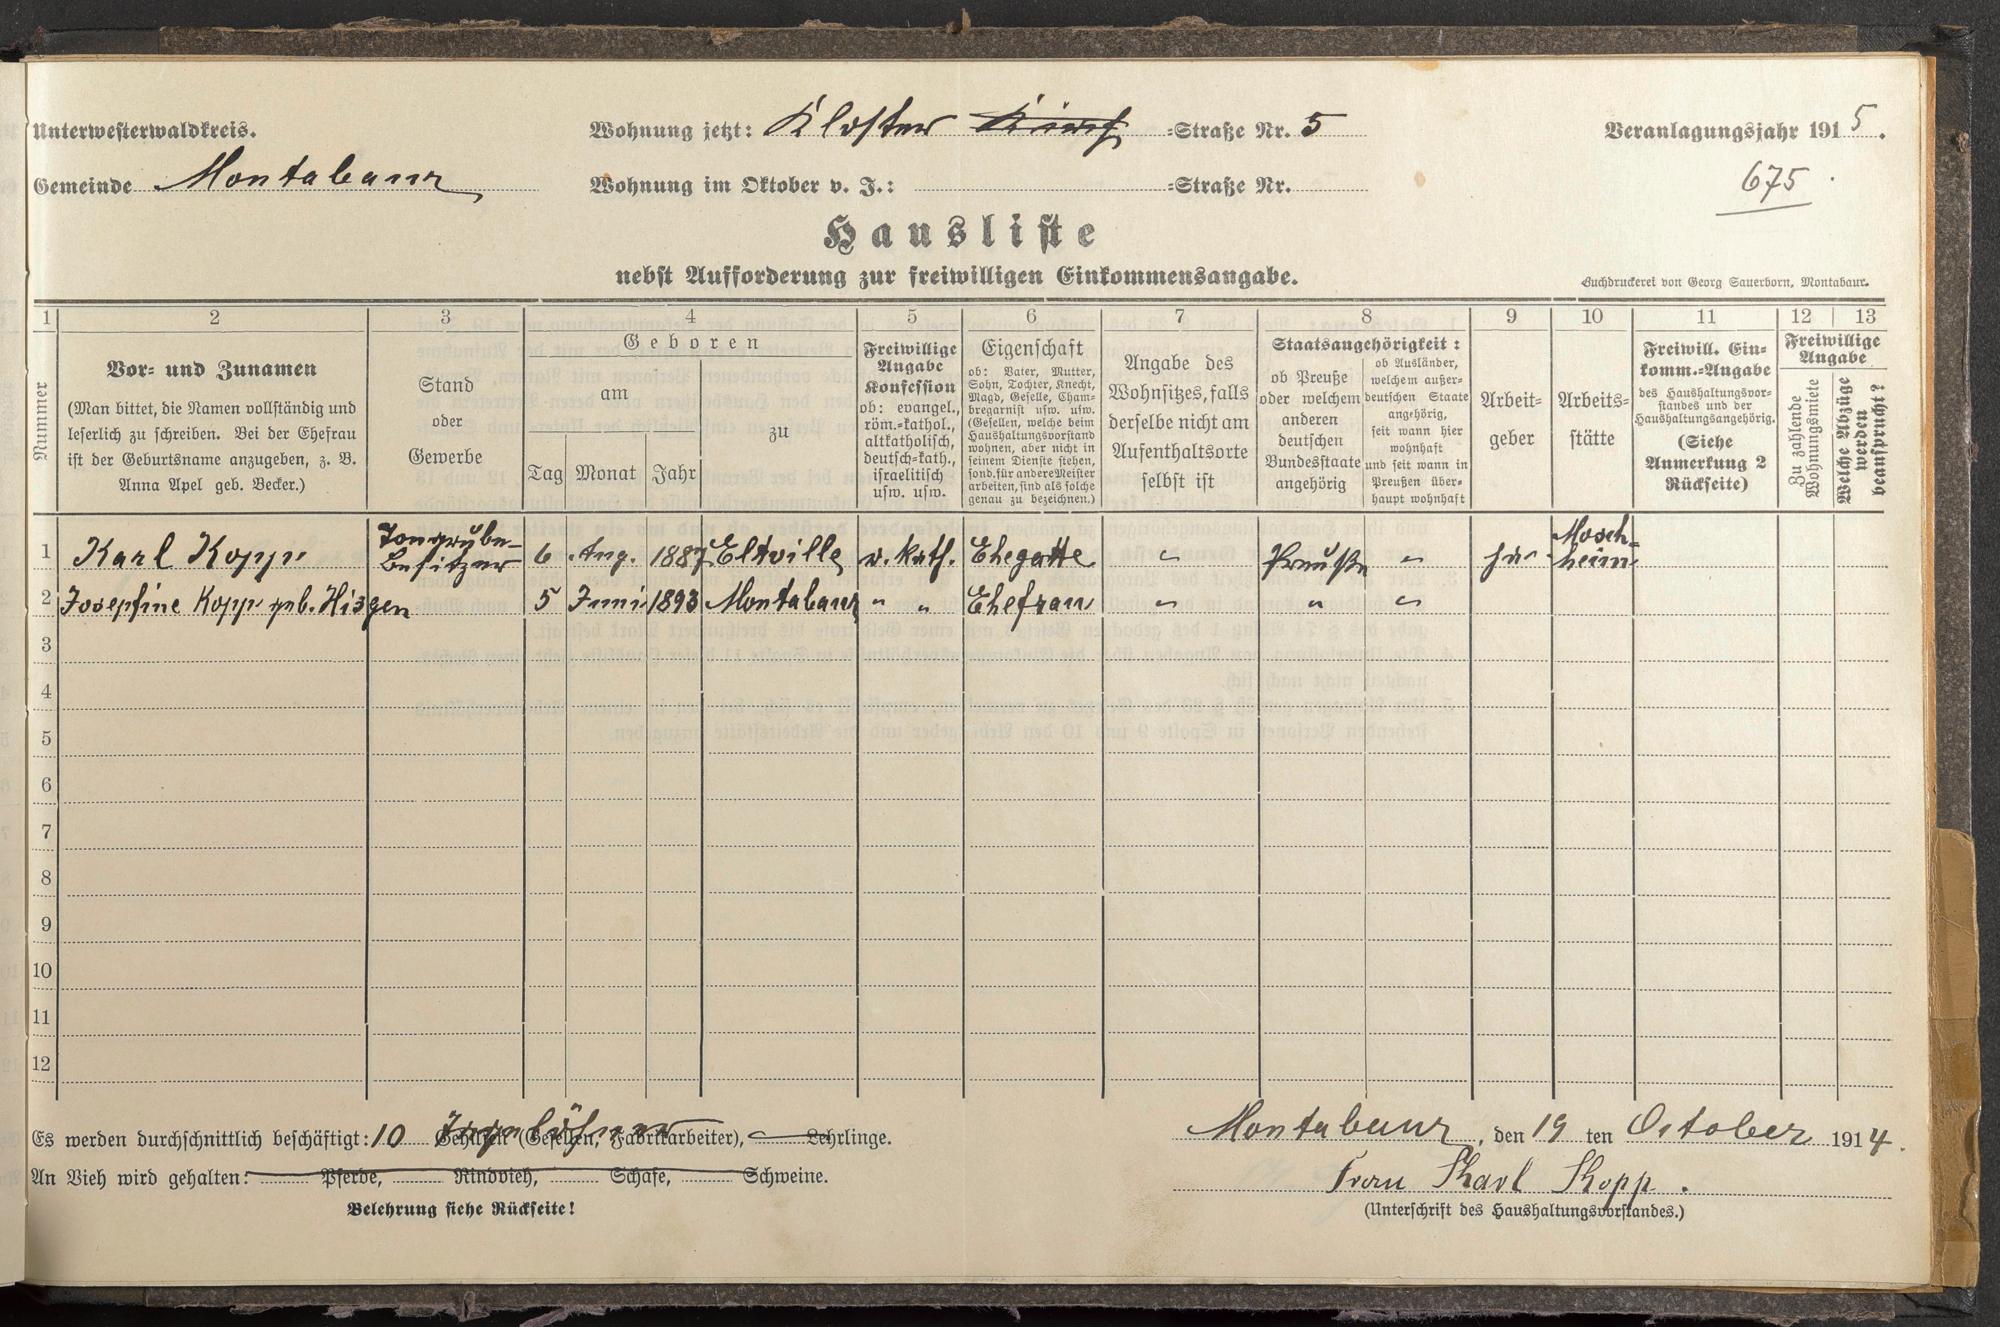 Unterwesterwaldkreis.
Wohnung jetzt: Kloster Kirch -Straße Nr. 5
Veranlagungsjahr 1915.
Gemeinde Montabaur
Wohnung im Oktober v. J.: -Straße Nr.
675
Hausliste
nebst Aufforderung zur freiwilligen Einkommensangabe.
Buchdruckerei von Georg Sauerborn, Montabaur.
1 2 3 4 5 6 7 8 9 10 11 12 13
Nummer
Vor- und Zunamen
(Man bittet, die Namen vollständig und
leserlich zu schreiben. Bei der Ehefrau
ist der Geburtsname anzugeben, z. B.
Anna Apel geb. Becker.)
Stand
oder
Gewerbe
Geboren
am
Tag Monat Jahr
zu
Freiwillige
Angabe
Konfession
ob: evangel.,
röm.-kathol.,
altkatholisch,
deutsch-kath.,
israelitisch
usw. usw.
Eigenschaft
ob: Vater, Mutter,
Sohn, Tochter, Knecht,
Magd, Geselle, Cham-
bregarnist usw. usw.
(Gesellen, welche beim
Haushaltungsvorstand
wohnen, aber nicht in
seinem Dienste stehen,
sond. für andere Meister
arbeiten, sind als solche
genau zu bezeichnen.)
Angabe des
Wohnsitzes, falls
derselbe nicht am
Aufenthaltsorte
selbst ist
Staatsangehörigkeit:
ob Preuße
oder welchem
anderen
deutschen
Bundesstaate
angehörig
ob Ausländer,
welchem außer-
deutschen Staate
angehörig,
seit wann hier
wohnhaft
und seit wann in
Preußen über-
haupt wohnhaft
Arbeit-
geber
Arbeits-
stätte
Freiwill. Ein-
komm.-Angabe
des Haushaltungsvor-
standes und der
Haushaltungsangehörig.
(Siehe
Anmerkung 2
Rückseite)
Freiwillige
Angabe
Zu zahlende
Wohnungsmiete
Welche Abzüge
werden
beansprucht?
1 Karl Kopp Tongrube-
Besitzer 6 Aug. 1887 Eltville r. kath. Ehegatte " Preuße " Mosch-
heim
2 Josephine Kopp geb. Hisgen 5 Juni 1893 Montabaur " " Ehefrau " " "
3
4
5
6
7
8
9
10
11
12
Es werden durchschnittlich beschäftigt: 10 Tagelöhner Gehilfen (Gesellen, Fabrikarbeiter), Lehrlinge.
Montabaur, den 19 ten October 1914.
An Vieh wird gehalten: Pferde, Rindvieh, Schafe, Schweine.
Frau Karl Kopp.
Belehrung siehe Rückseite!
(Unterschrift des Haushaltungsvorstandes.)